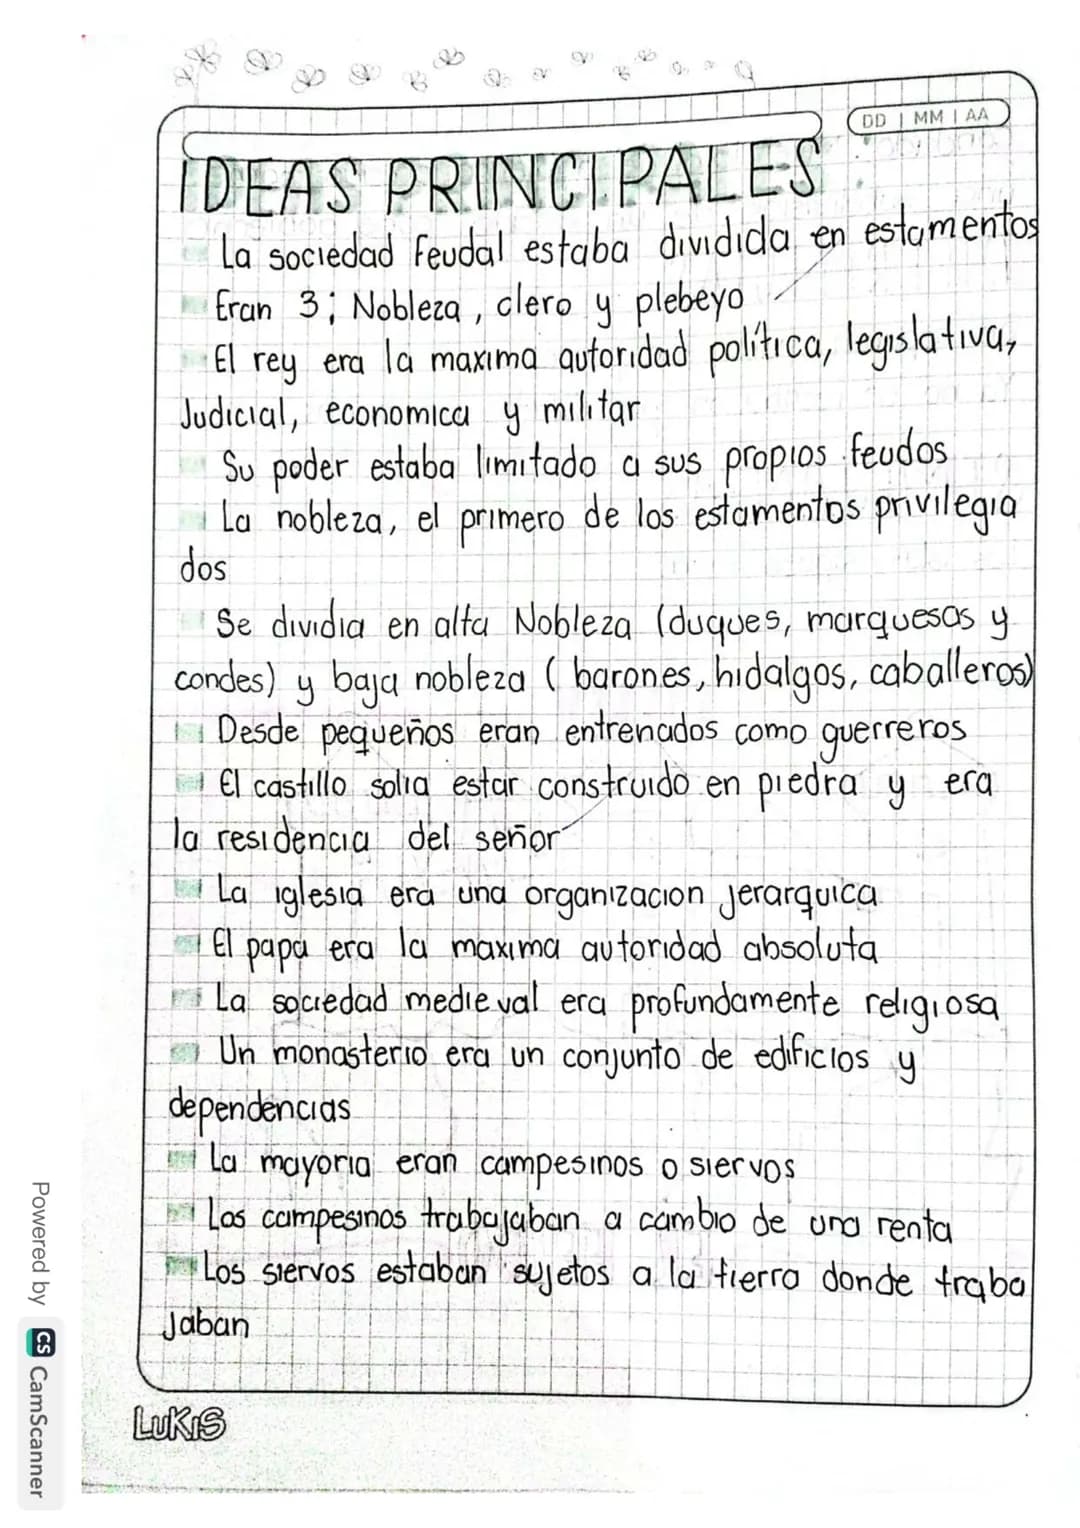 DD | MM | AA
IDEAS PRINCIPALES
La sociedad feudal estaba dividida en estamentos
Eran 3; Nobleza, clero y plebeyo
El rey era la maxima autoridad política, legislativa,
Judicial, economica y militar
Su poder estaba limitado a sus propios feudos
La nobleza, el primero de los estamentos privilegia
dos
Se dividia en alta Nobleza (duques, marquesas y
condes) y baja nobleza (barones, hidalgos, caballeros)
Desde pequeños eran entrenados como guerreros
El castillo solia estar construido en piedra y era
la residencia del señor
La iglesia era una organizacion jerarquica
El papa era la maxima autoridad absoluta
La sociedad medieval era profundamente religiosa
Un monasterio era un conjunto de edificios y
dependencias
La mayoria eran campesinos o siervos
Los campesinos trabajaban a cambio de una renta
Los siervos estaban sujetos a la tierra donde traba
Jaban
LUKIS
Powered by CS CamScanner